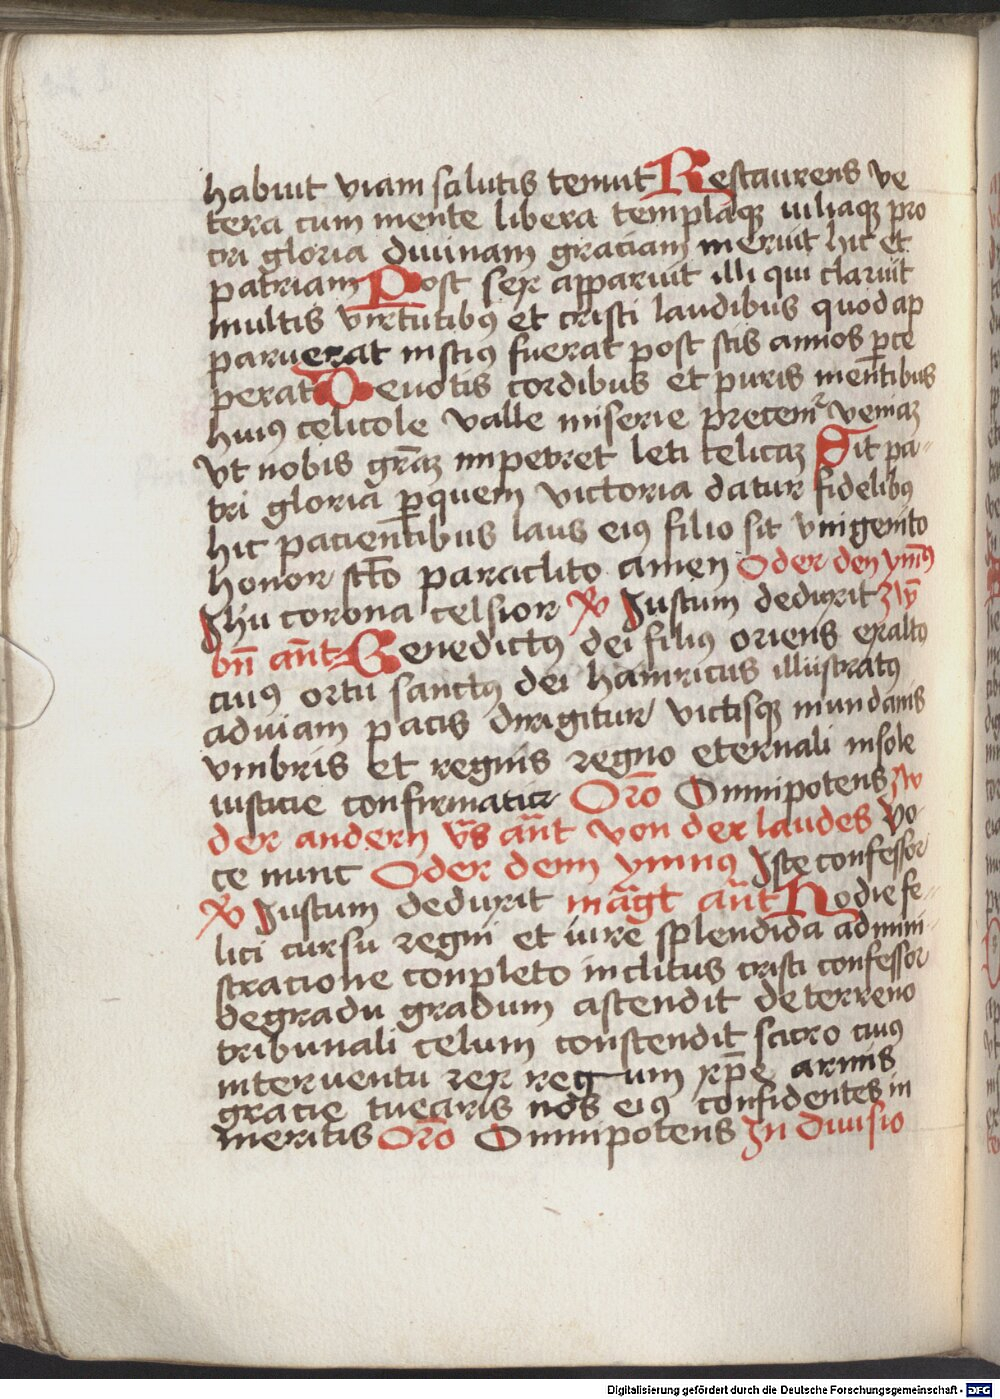 habuit viam salutis tenuit Restaurens ve
tera cum mente libera templaqꝫ iuliaqꝫ pro
cri gloria diuinam graciam meruit hic et
patriam Post sex apparuit illi qui claruit
multis virtutibꝰ et cristi laudibus quod ap
paruerat insciꝰ fuerat post scis annos ꝑce
perat Deuotis cordibus et puris mentibus
huiꝰ celicole valle miserie precemꝛ veniaꝫ
vt nobis gr̄aꝫ impetret leti celicaꝫ Sit pa-
tri gloria ꝑ quem victoria datur fidelibꝰ
hic pacientibus laus eiꝰ filio sit vnigenito
honor sc̄to paraclito amen Oder den ymꝰ
Jhū corona celsior ꝟ Justum deduxit zw̄
bn̄ an̄t Benedictꝰ dei filiꝰ oriens exalto
cuiꝰ ortu sanctꝰ dei hainricus illustratꝰ
ad viam pacis dirigitur victisqꝫ mundanis
vmbris et regnis regno eternali in sole
iusticie confirmatur Or̄o Omnipotens zw
der andern v̄s an̄t von der laudes Vo-
ce nunc Oder denn ymnꝰ Jste confessor
ꝟ Justum deduxit māgt an̄t Hodie fe-
lici cursu regni et iure splendida admini-
stracione conpleto inclitus cristi confessor
de gradu gradum ascendit de terreno
tribunali celum conscendit sacro cuiꝰ
interuentu rex regum xp̄e armis
gracie tuearis nos eiꝰ confidentes in
meritis Or̄o Omnipotens Jn diuisio
Digitalisierung gefördert durch die Deutsche Forschungsgemeinschaft - DFG